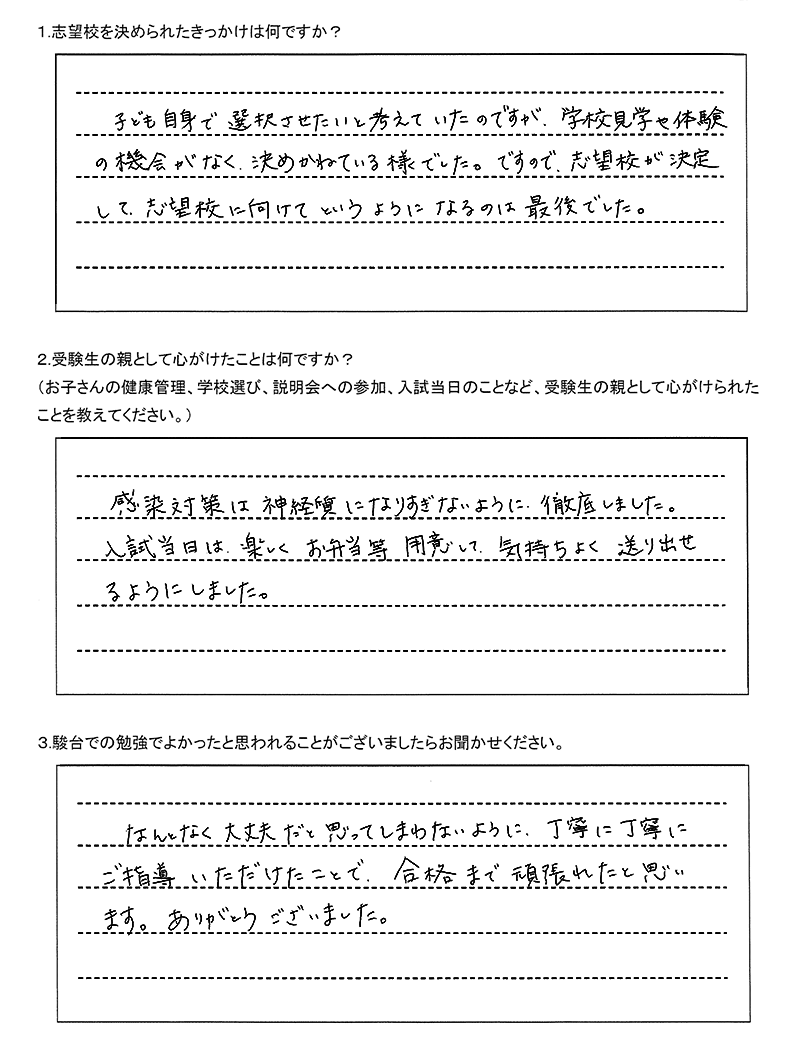 1.志望校を決められたきっかけは何ですか？
子ども自身で選択させたいと考えていたのですが、学校見学や体験
の機会がなく、決めかねている様でした。ですので、志望校が決定
して、志望校に向けてというようになるのは最後でした。
2.受験生の親として心がけたことは何ですか？
（お子さんの健康管理、学校選び、説明会への参加、入試当日のことなど、受験生の親として心がけられた
ことを教えてください。）
感染対策は神経質になりすぎないように、徹底しました。
入試当日は、楽しくお弁当等用意して、気持ちよく送り出せ
るようにしました。
3.駿台での勉強でよかったと思われることがございましたらお聞かせください。
なんとなく大丈夫だと思ってしまわないように、丁寧に丁寧に
ご指導いただけたことで、合格まで頑張れたと思い
ます。ありがとうございました。